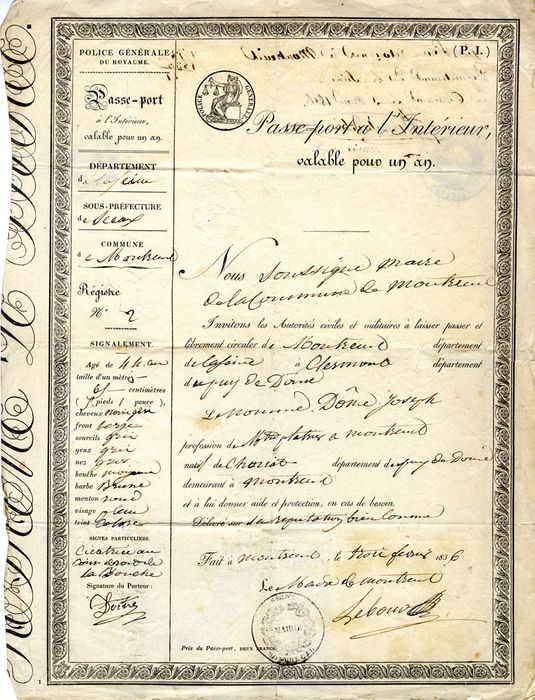 POLICE GÉNÉRALE
DU ROYAUME.
Passe-port
à l'Intérieur,
valable pour un an.
DÉPARTEMENT
de la Seine
SOUS-PRÉFECTURE
de Sceaux
COMMUNE
de Montreuil
Régistre
N° 2
SIGNALEMENT.
Agé de 44 an
taille d'un mètre
65 centimètres
( pieds 1 pouce ),
cheveux noir gris
front
sourcils gris
yeux gris
nez gros
bouche moyenne
barbe Brune
menton rond
visage plein
teint Coloré
SIGNES PARTICULIERS.
Cicatrice au
de
la Bouche
Signature du Porteur :
Dome
(P. I.)
POLICE GÉNÉRALE
Passe-port à l'Intérieur,
valable pour un an.
Nous Soussigné maire
de la Commune de Montreuil
Invitons les Autorités civiles et militaires à laisser passer et
librement circuler de Montreuil département
de la Seine à Clermont département
du puy de Dome
Le Nommé Dôme Joseph
profession de Md platrier a montreuil
natif de Choriat département du puy de Dome
demeurant à Montreuil
et à lui donner aide et protection, en cas de besoin.
Délivré sur sa reputation bien Connue
Fait à Montreuil le trois fevrier 1836
Le Maire de Montreuil
Lebour
MAIRIE
Prix du Passe-port, DEUX FRANCS.
1